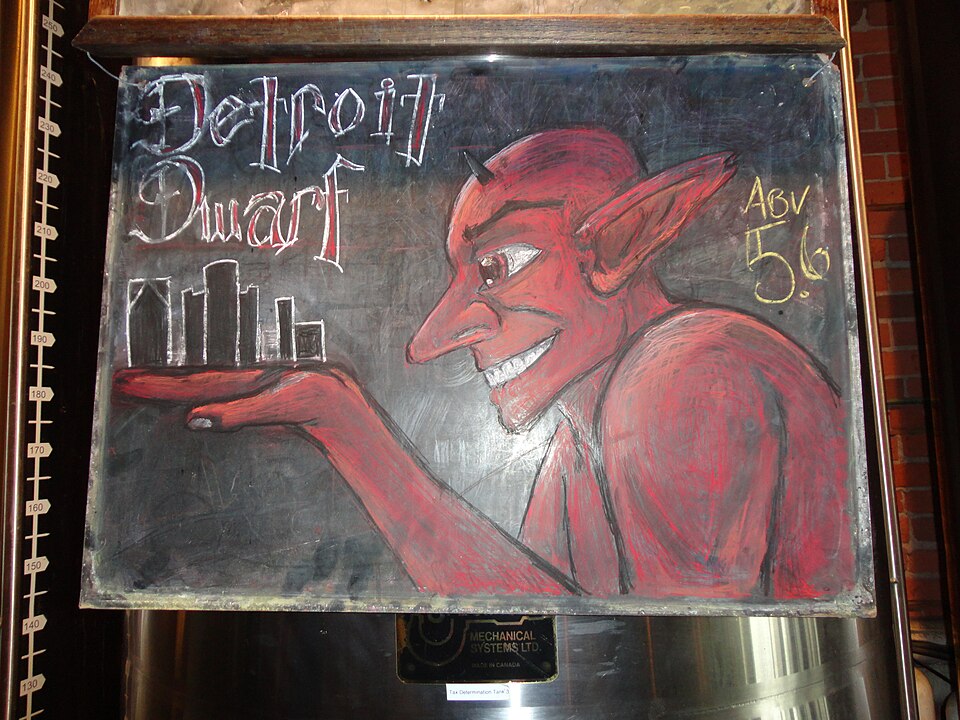 Detroit
Dwarf
ABV
5.6
250
240
230
220
210
200
190
180
170
160
150
140
130
MECHANICAL
SYSTEMS LTD.
MADE IN CANADA
Tax Determination Tank